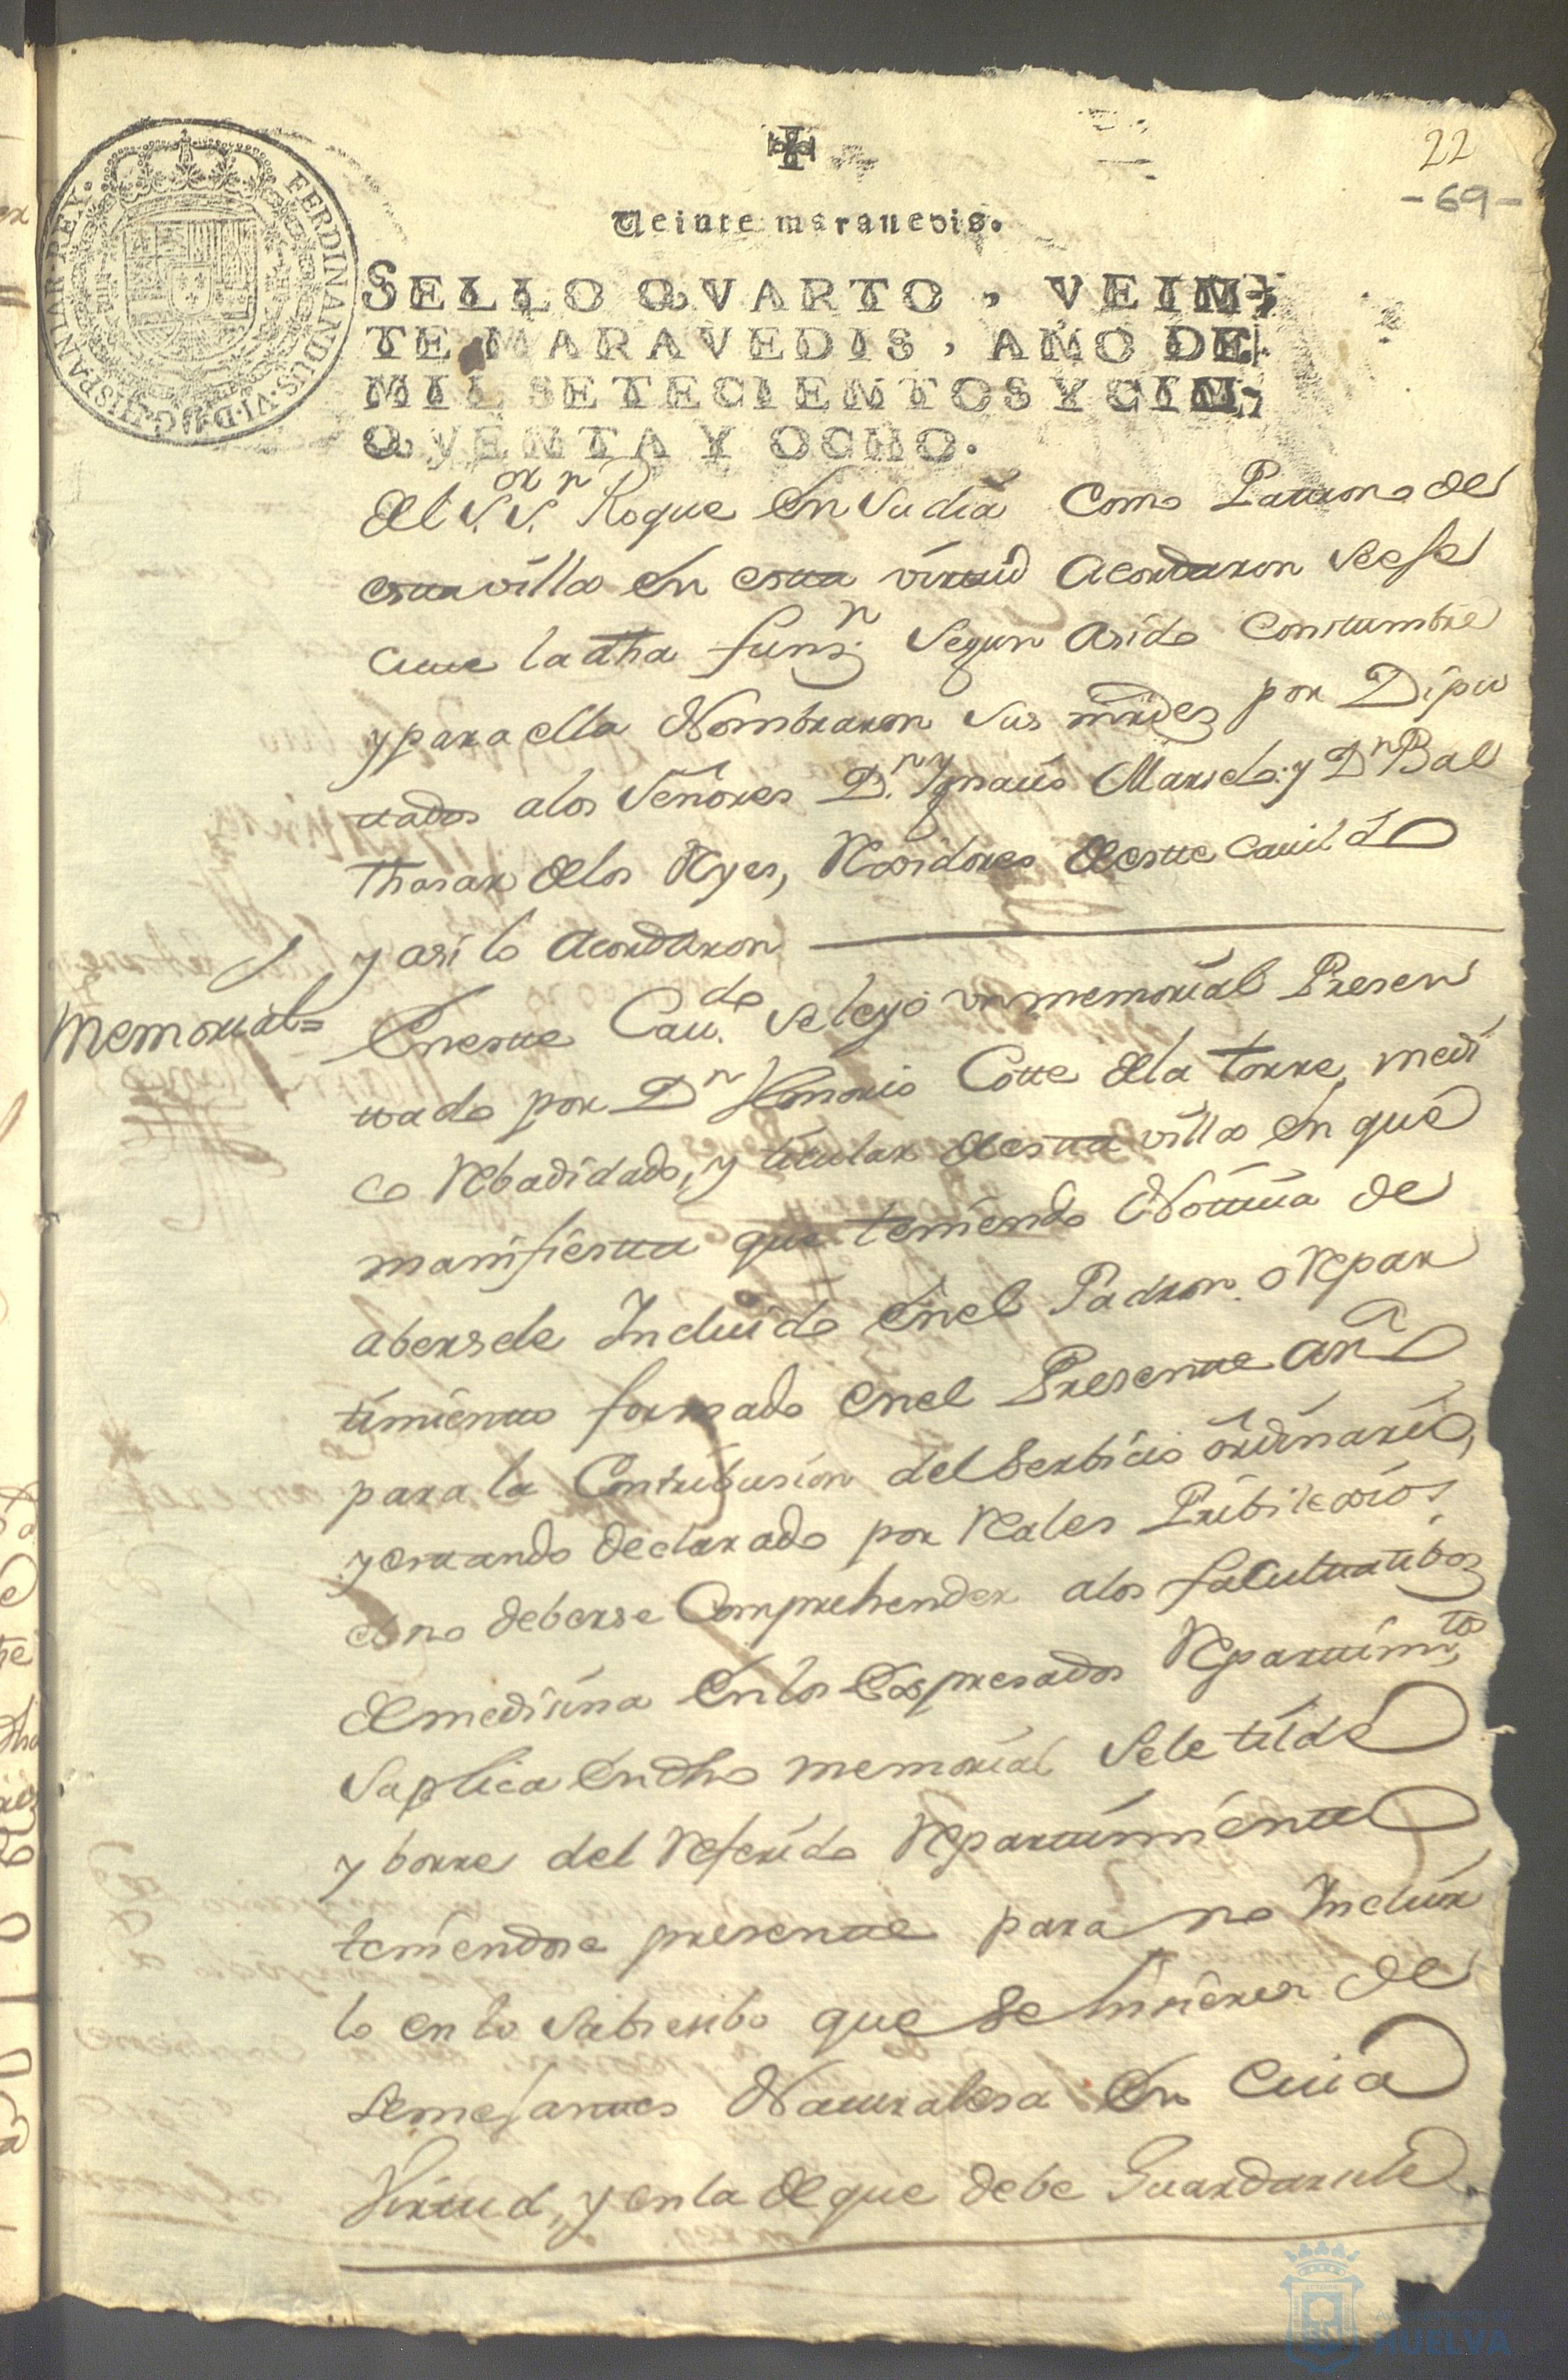 22
-69-
Veinte maravedis.
SELLO QVARTO, VEIN-
TE MARAVEDIS, AÑO DE
MIL SETECIENTOS Y CIN-
QVENTA Y OCHO.
HISPANIAR·REX·
FERDINANDUS·VI·D·G·
del S.or S.n Roque en su dia como Patrono de
esta villa en esta virtud acordaron se efe
ctue la dha funz.n segun asido constumbre
y para ella Nombraron sus mrdes por Dipu
tados a los Señores D.n Ygnacio Marselo y D.n Bal
thasar de los Reyes, Rexidores de este cauildo
y asi lo acordaron
Memorial=
En este Cau.do se leyó un memorial Presen
tado por D.n Honorio Cotte de la torre, medi
co Rebadidado, y titular de esta villa en que
manifiesta que teniendo Noticia de
abersele Incluido en el Padron o Repar
timiento formado en el Presente año
para la Contribusion del Serbicio ordinario,
y estando declarado por Reales Pribilexios
el no deberse Comprehender a los facultatibos
de medisina en los Expresados Repartim.tos
Suplica en dho memorial se le tilde
y borre del Referido Repartimiento
teniendose presente para no Incluir
lo en lo subsesibo que se hisieren de
semejantes Naturalesa en Cuia
Virtud, y en la de que debe Guardarsele
HUELVA